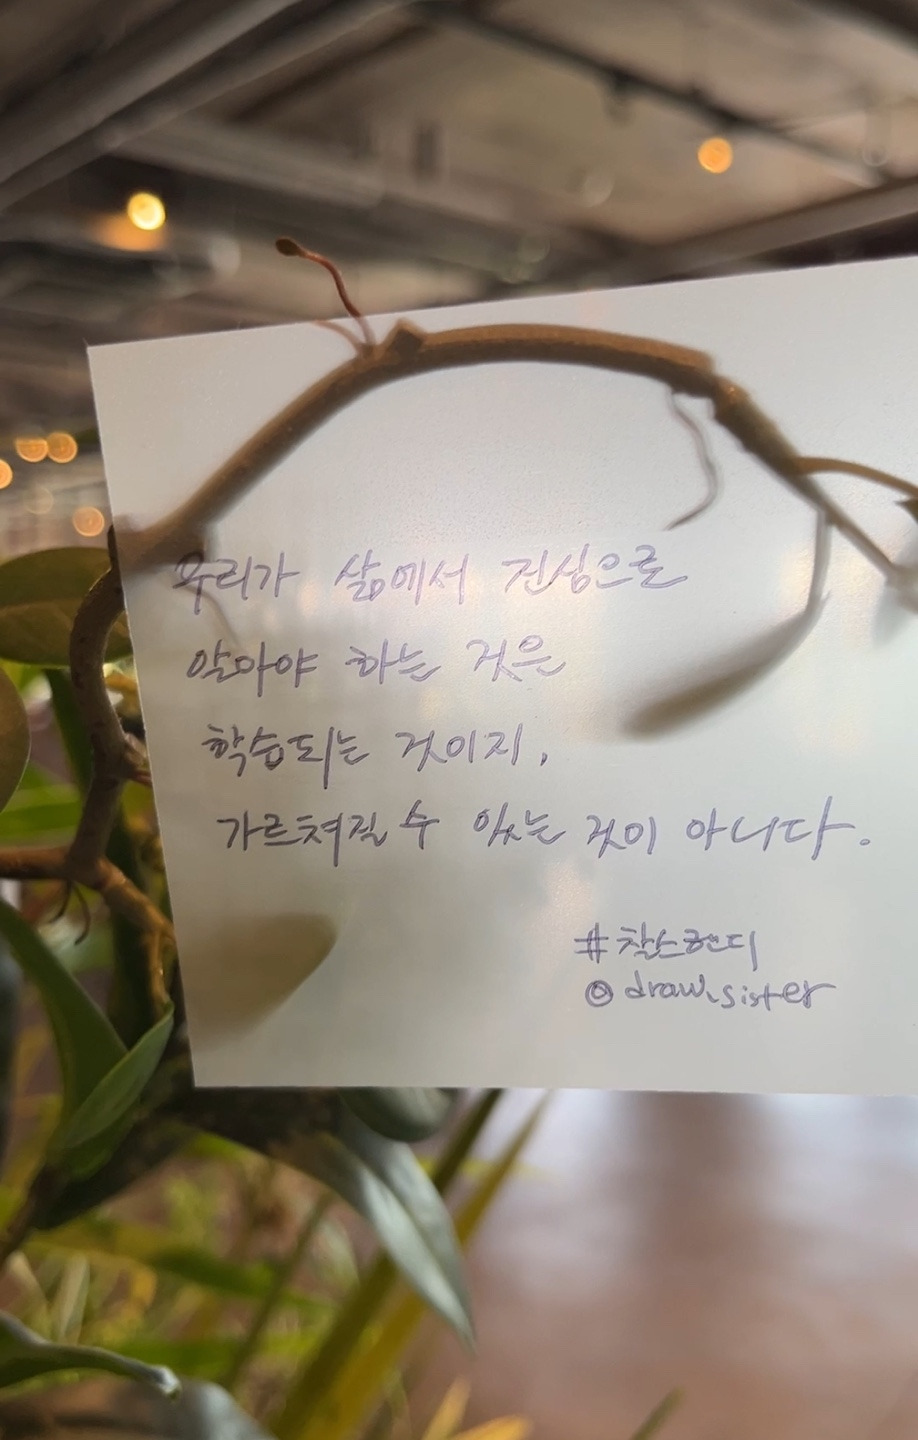 우리가 삶에서 진심으로
알아야 하는 것은
학습되는 것이지,
가르쳐질 수 있는 것이 아니다.
#찰스핸디
@draw.sister